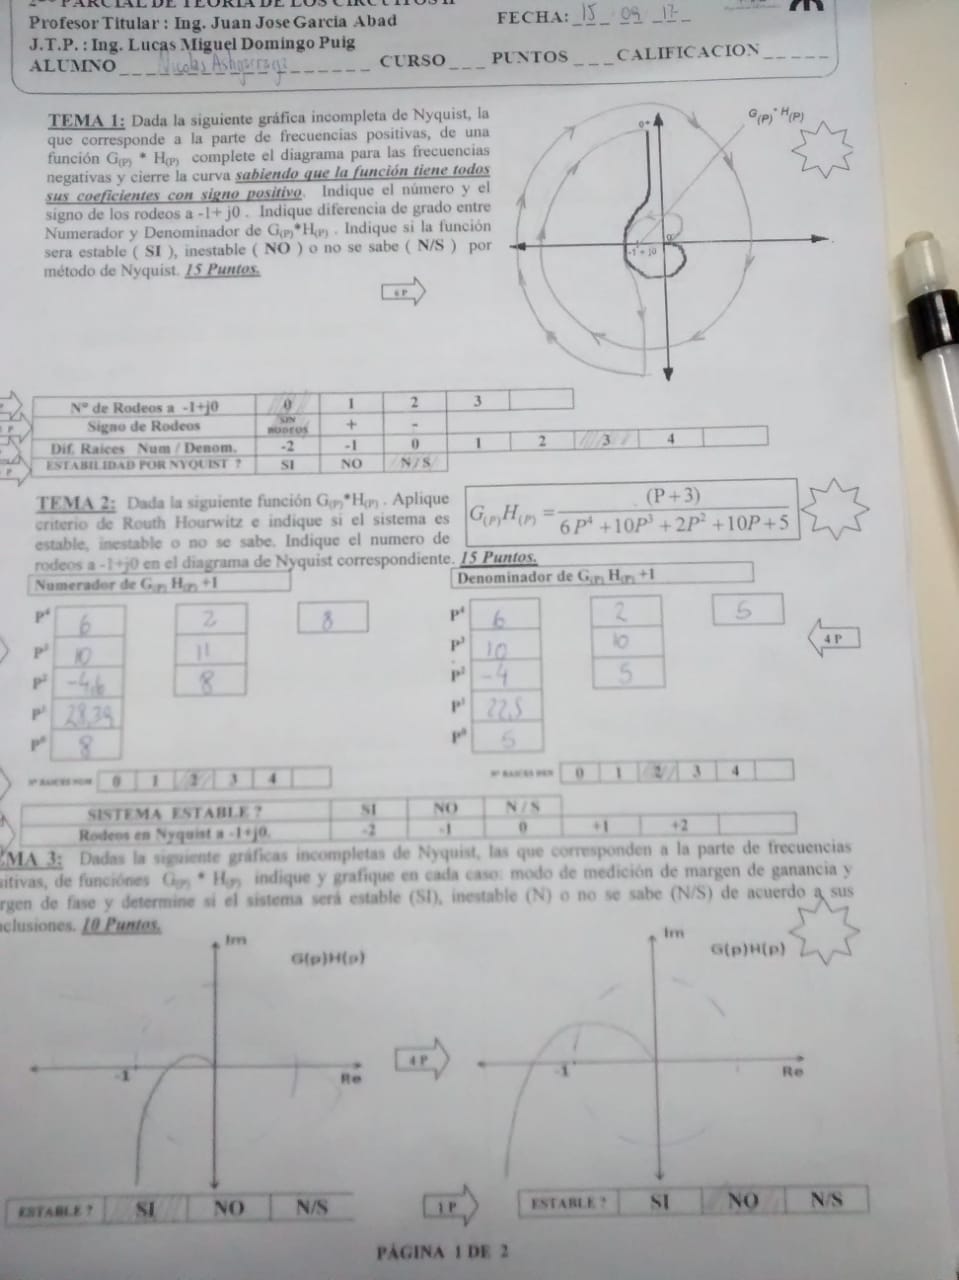 PARCIAL DE TEORIA DE LOS CIRCUITOS II
Profesor Titular : Ing. Juan Jose Garcia Abad
FECHA: 15 09 17
J.T.P. : Ing. Lucas Miguel Domingo Puig
ALUMNO Nicolas
CURSO ___ PUNTOS ___ CALIFICACION _____
TEMA 1: Dada la siguiente gráfica incompleta de Nyquist, la
que corresponde a la parte de frecuencias positivas, de una
función G(P) * H(P) complete el diagrama para las frecuencias
negativas y cierre la curva sabiendo que la función tiene todos
sus coeficientes con signo positivo. Indique el número y el
signo de los rodeos a -1+ j0 . Indique diferencia de grado entre
Numerador y Denominador de G(P)*H(P) . Indique si la función
sera estable ( SI ), inestable ( NO ) o no se sabe ( N/S ) por
método de Nyquist. 15 Puntos.
G(P) * H(P)
0+
-1 + j0
6 P
Nº de Rodeos a -1+j0 0 1 2 3
Signo de Rodeos SIN RODEOS + -
Dif. Raices Num / Denom. -2 -1 0 1 2 3 4
ESTABILIDAD POR NYQUIST ? SI NO N/S
TEMA 2: Dada la siguiente función G(P)*H(P) . Aplique
criterio de Routh Hourwitz e indique si el sistema es
estable, inestable o no se sabe. Indique el numero de
rodeos a -1+j0 en el diagrama de Nyquist correspondiente. 15 Puntos.
G(P)H(P) = (P+3) / 6P⁴+10P³+2P²+10P+5
Numerador de G(P) H(P) +1
Denominador de G(P) H(P) +1
P⁴ 6 2 8
P³ 10 11
P² -4,6 8
P¹ 28,39
P⁰ 8
P⁴ 6 2 5
P³ 10 10
P² -4 5
P¹ 22,5
P⁰ 5
4 P
Nº RAICES NUM 0 1 2 3 4
Nº RAICES DEN 0 1 2 3 4
SISTEMA ESTABLE ? SI NO N/S
Rodeos en Nyquist a -1+j0. -2 -1 0 +1 +2
MA 3: Dadas la siguiente gráficas incompletas de Nyquist, las que corresponden a la parte de frecuencias
sitivas, de funciónes G(P) * H(P) indique y grafique en cada caso: modo de medición de margen de ganancia y
rgen de fase y determine si el sistema será estable (SI), inestable (N) o no se sabe (N/S) de acuerdo a sus
clusiones. 10 Puntos.
Im
G(p)H(p)
-1
Re
4 P
Im
G(p)H(p)
-1
Re
ESTABLE ? SI NO N/S
1 P
ESTABLE ? SI NO N/S
PÁGINA 1 DE 2